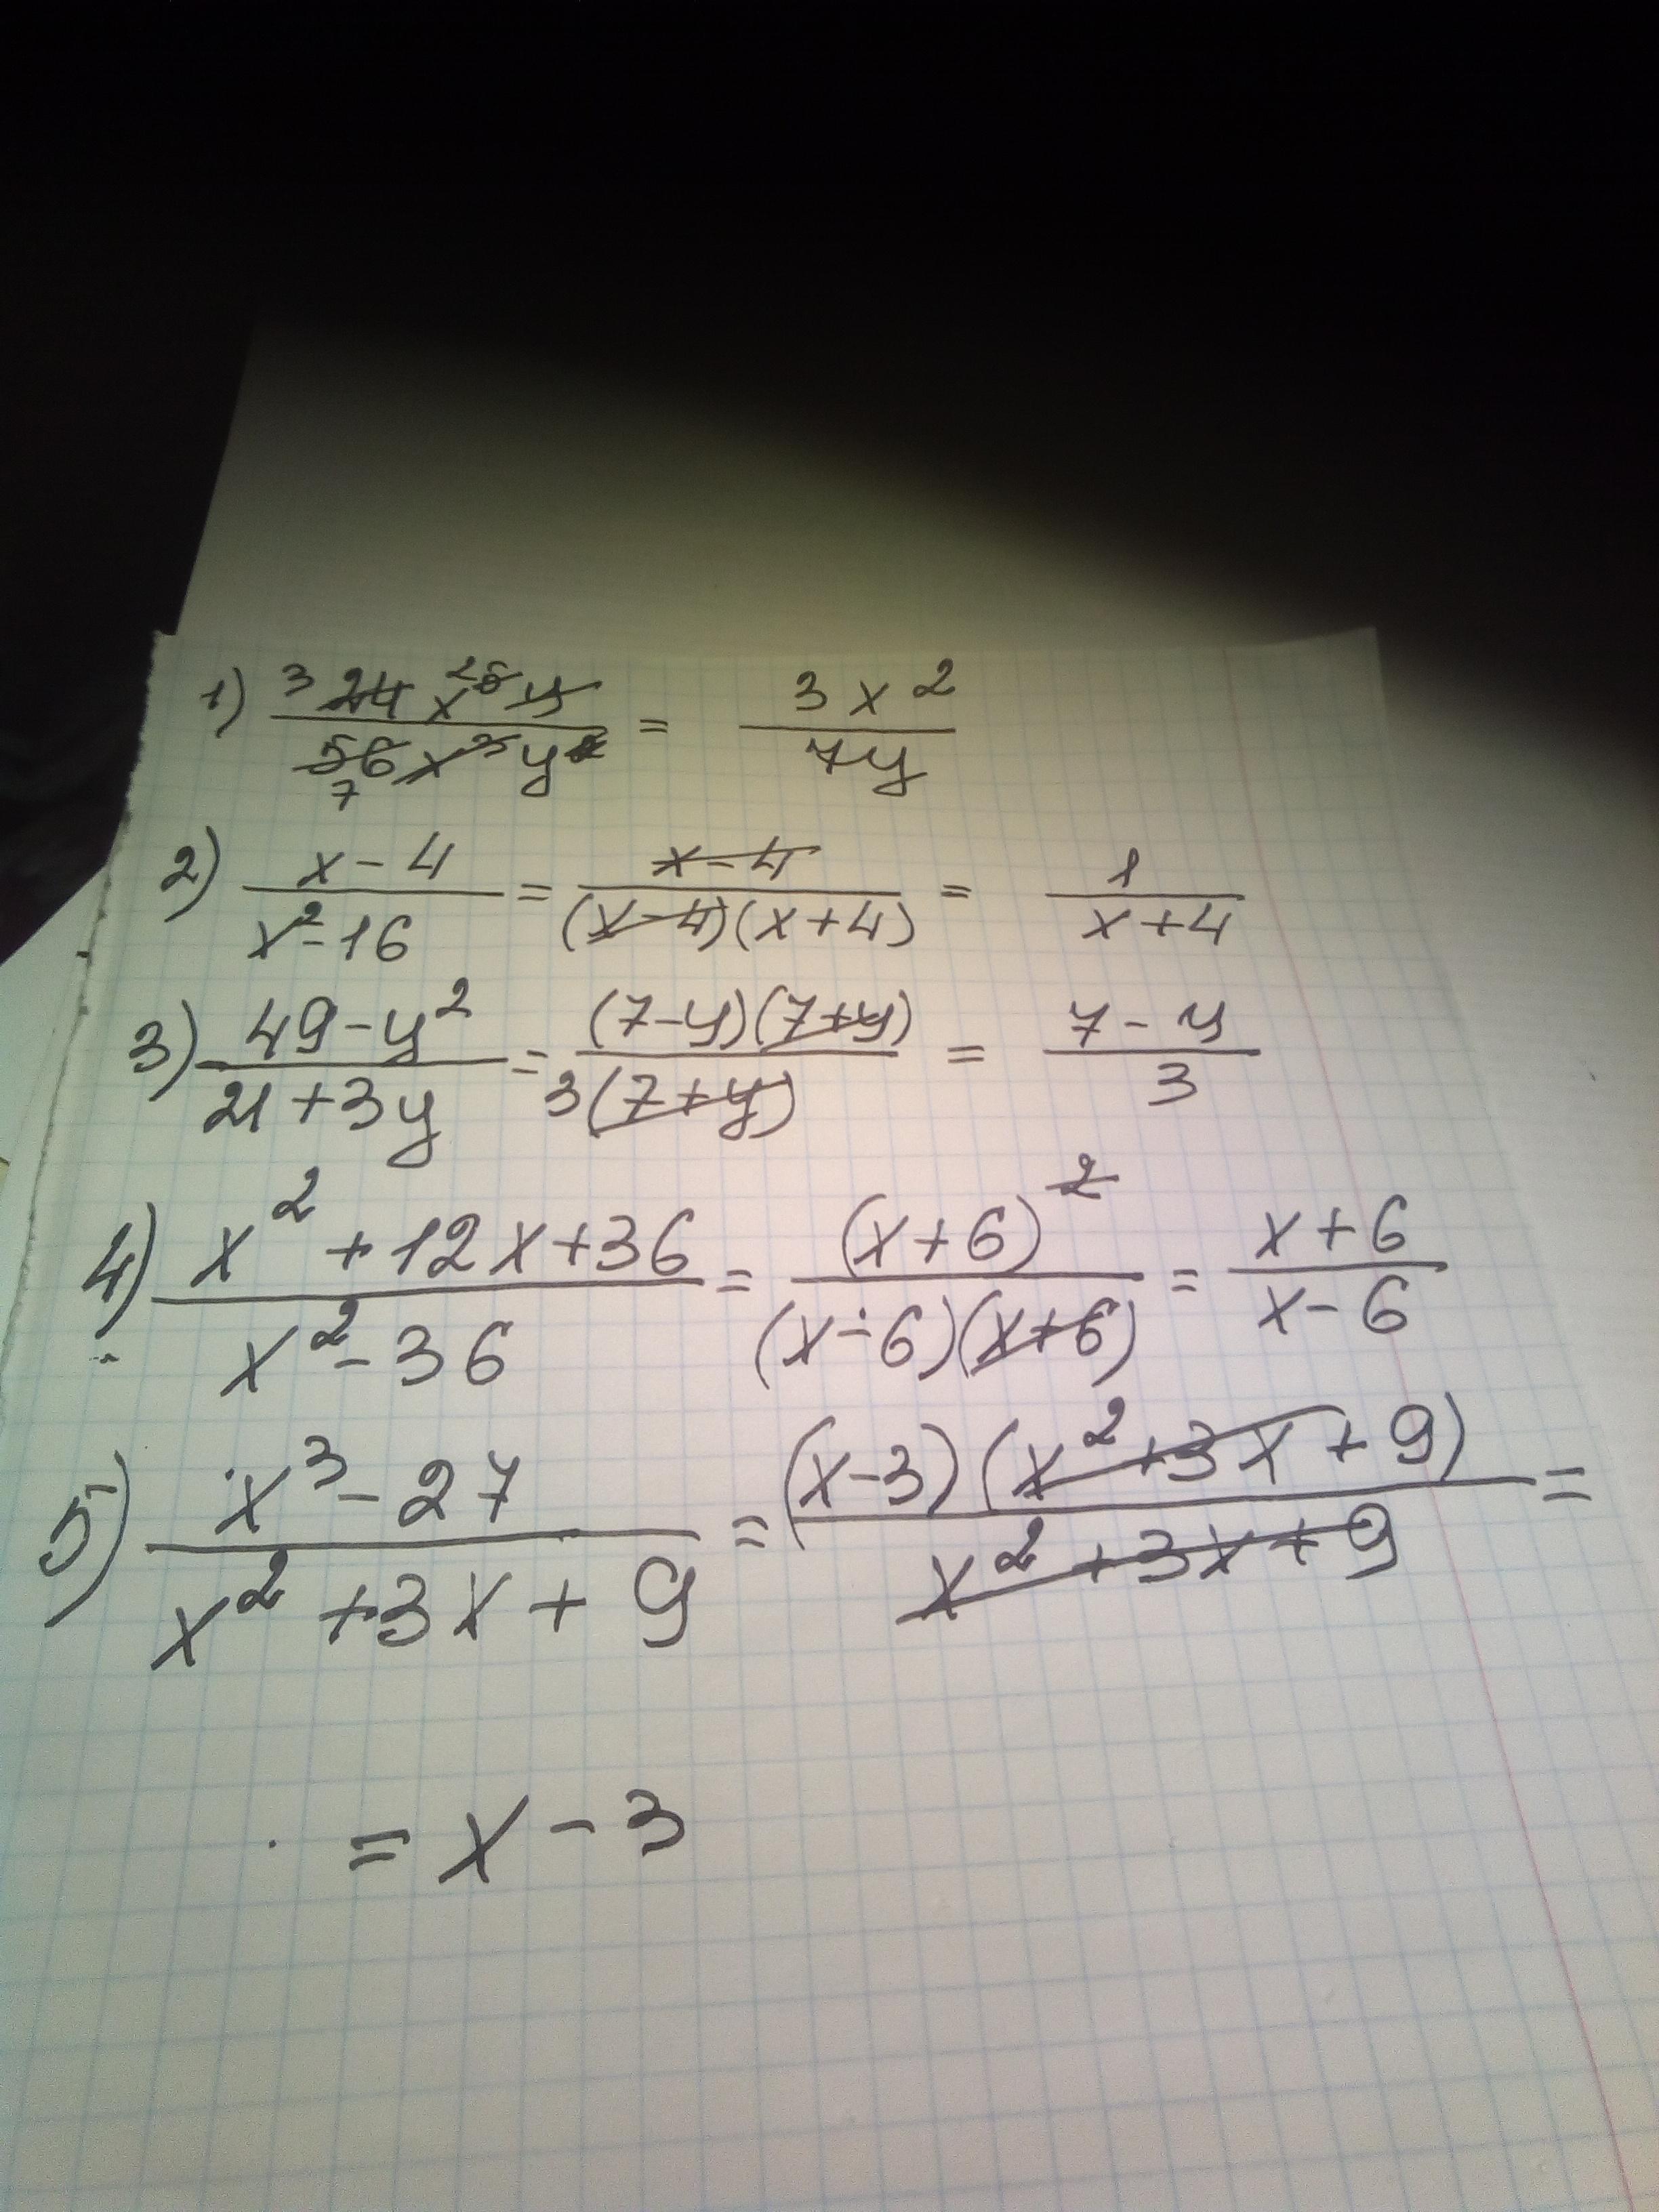 1) 3 24 x^2 5 y / 56 7 x^3 y^2 = 3x^2 / 7y
2) x-4 / x^2-16 = x-4 / (x-4)(x+4) = 1 / x+4
3) 49-y^2 / 21+3y = (7-y)(7+y) / 3(7+y) = 7-y / 3
4) x^2+12x+36 / x^2-36 = (x+6)^2 / (x-6)(x+6) = x+6 / x-6
5) x^3-27 / x^2+3x+9 = (x-3)(x^2+3x+9) / x^2+3x+9 =
= x-3